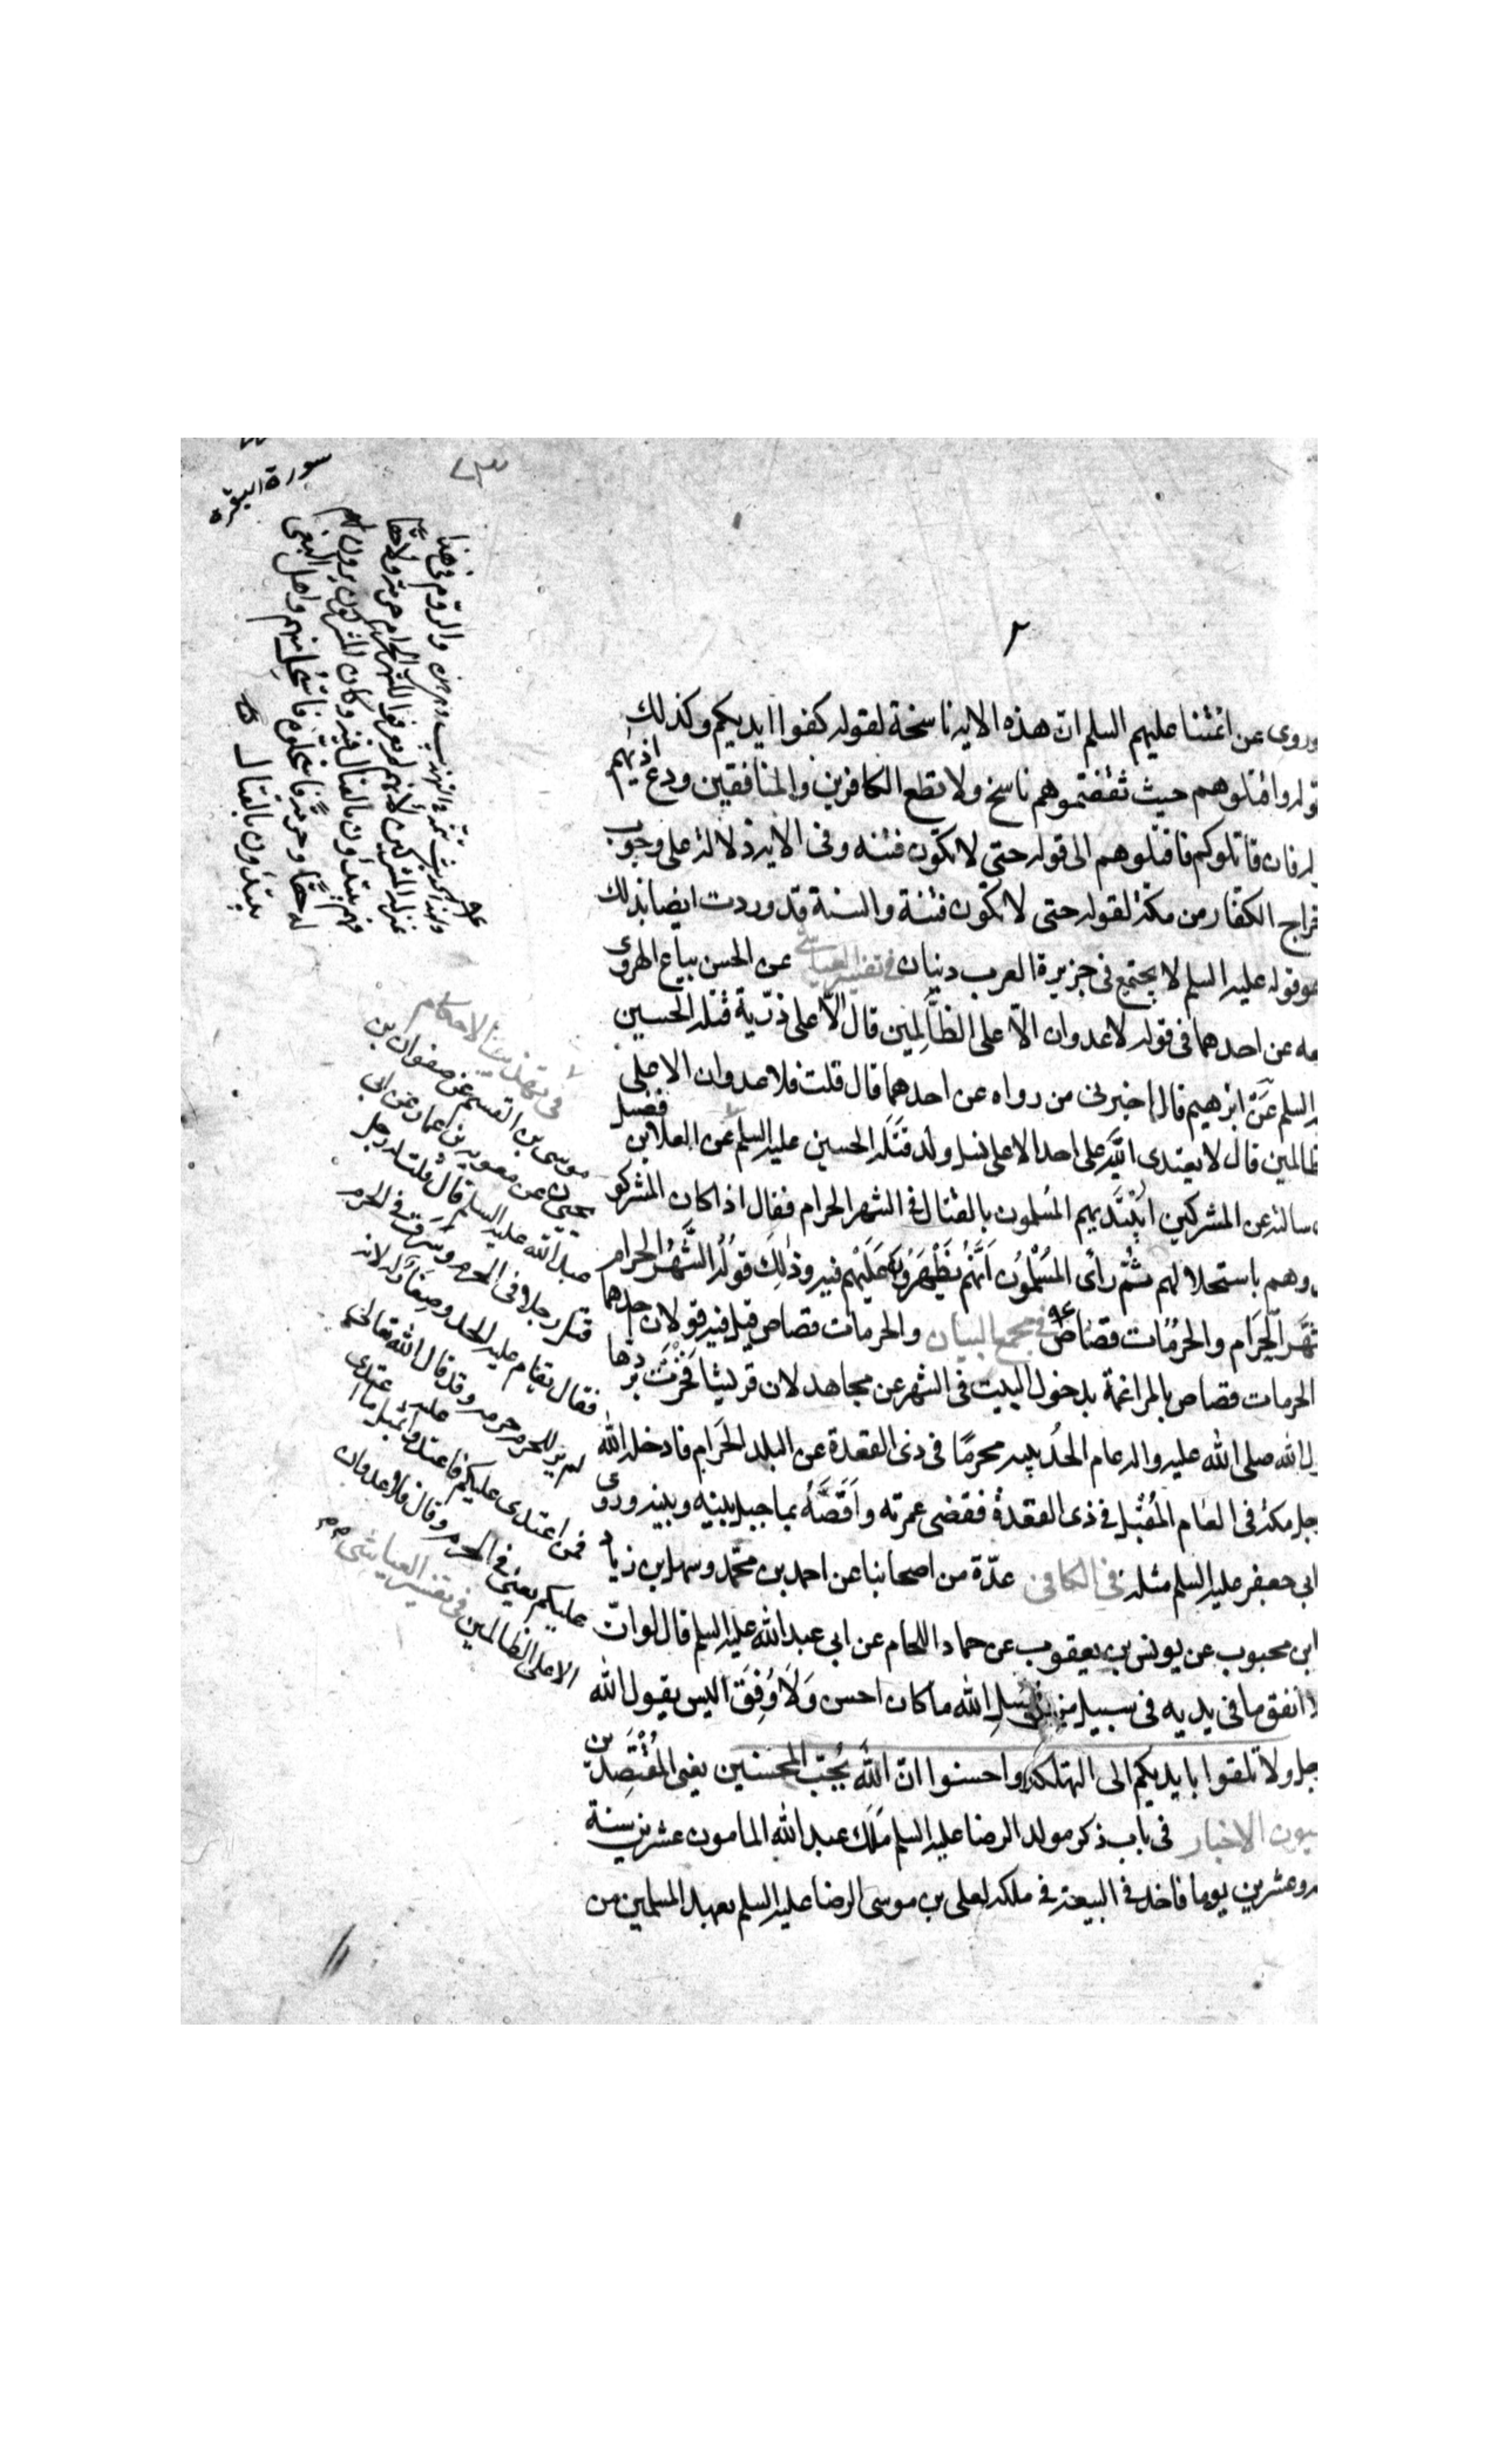 سورة البقرة
٧٣
٢
وروى عن ائمتنا عليهم السلم ان هذه الايه ناسخة لقوله كفوا ايديكم وكذلك
قوله واقتلوهم حيث ثقفتموهم ناسخ ولا تطع الكافرين والمنافقين ودع اذيهم
له فان قاتلوكم فاقتلوهم الى قوله حتى لا تكون فتنه وفى الايه دلالة على وجوب
خراج الكفار من مكة لقوله حتى لا تكون فتنة والسنة قد وردت ايضا بذلك
هو قوله عليه السلم لا يجتمع فى جزيرة العرب دينان فى تفسير العياشى عن الحسن بياع الهروى
عه عن احدهما فى قوله لا عدوان الا على الظالمين قال الا على ذرّية قتلة الحسين
ه السلم عَنْ ابرهيم قال اخبرنى من رواه عن احدهما قال قلت فلا عدوان الا على
ظالمين قال لا يعتدى الله على احد الا على نسل ولد قَتَلَة الحسين عليه السلم عن العلا بن فضيل
سالته عن المشركين ايَبْتَدِيهم المُسلمون بالقتال فى الشهر الحرام فقال اذا كان المشركو
وهم باستحلالهم ثُمَّ رأى المُسْلمُون اَنَّهُم يَظْهَرُونَ عَلَيْهِم فيه وذلِكَ قوْلُه الشَّهْرُ الحرام
شَّهْر الحَرَام والحرُمَات قصَاصٌ فى مجمع البيان والحرمات قصاص قيل فيه قولان احدهما
الحرمات قصاص بالمراغمة بدخول البيت فى الشهر عن مجاهد لان قريشا فَخَرَتْ بِرَدّها
ل الله صلى الله عليه واله عام الحُديبيه محرمًا فى ذى القعدة عن البلد الحَرام فادخله الله
جل مكة فى العام المُقْبِل فى ذى القعدة فقضى عمرته واَقَصَّهُ بما حيل بينه وبينه وروى
ابى جعفر عليه السلم مثله فى الكافى عدّة من اصحابنا عن احمد بن محمّد وسهل بن زياد
ابن محبوب عن يونس بن يعقوب عن حماد اللحام عن ابى عبد الله عليه السلم قال لو انّ
لا انفق ما فى يديه فى سبيل من سبل الله ما كان احسن وَلَا وُفِقَ اليس يقول الله
جل ولا تلقوا بايديكم الى التهلكة واحسنوا انّ اللهَ يُحِبّ المحسنين يعنى المُقْتَصِدين
عيون الاخبار فى باب ذكر مولد الرضا عليه السلم مَلَكَ عبد الله المامون عشرين سنة
ه وعشرين يوما فاخذ فى البيعة فى ملكه لعلى بن موسى الرضا عليه السلم بعهد المسلمين من
والرّوم فى هذا
بمنزلة المشركين لأنهم لم يعرفوا للشهر الحرام حرمة ولا حقا
فهم يبتدأون بالقتال فيه وكان المشركون يرون له
له حقًّا وحرمةً فاستحلّوه فاستُحِلَّ منهم واهل البغى
يبتدؤن بالقتال
فى تهذيب الاحكام
موسى بن القسم عن صفوان بن
يحيى عن معوية بن عمار عن ابى
عبد الله عليه السلم قال قلت له رجل
قتل رجلا فى الحرم وسَرَقَ فى الحرم
فقال يقام عليه الحد وصِغَارٌ له لانه
لم ير للحرم حرمه وقد قال الله تعالى
فمن اعتدى عليكم فاعتدوا عليه بمثل ما اعتدى
عليكم يعنى فى الحرم وقال فلا عدوان
الا على الظالمين فى تفسير العياشى